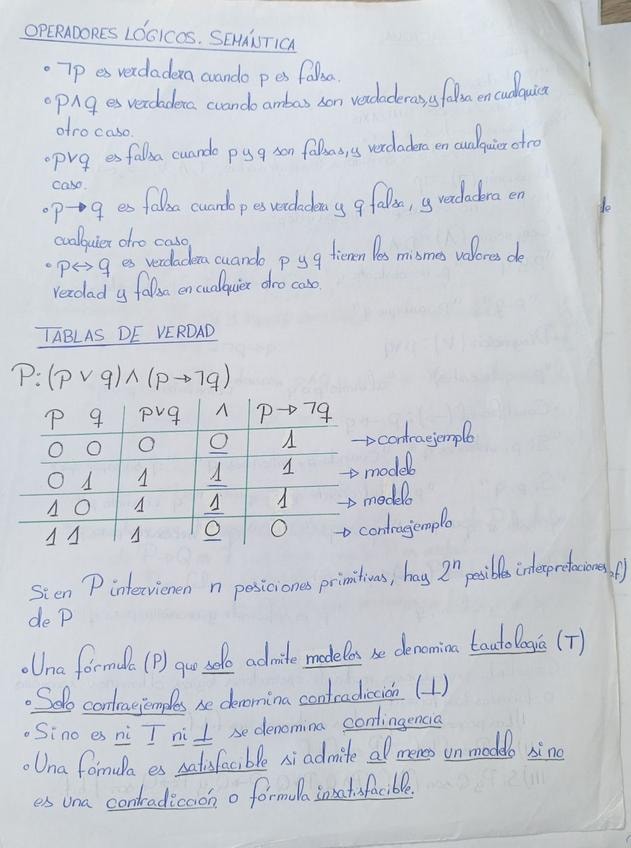 OPERADORES LÓGICOS. SEMÁNTICA
• ¬p es verdadera cuando p es falsa.
• p∧q es verdadera cuando ambas son verdaderas, y falsa en cualquier
otro caso.
• p∨q es falsa cuando p y q son falsas, y verdadera en cualquier otro
caso.
• p→q es falsa cuando p es verdadera y q falsa, y verdadera en
cualquier otro caso
• p↔q es verdadera cuando p y q tienen los mismos valores de
verdad y falsa en cualquier otro caso.
TABLAS DE VERDAD
P: (p ∨ q) ∧ (p → ¬q)
p q p∨q ∧ p → ¬q
0 0 0 0 1 → contraejemplo
0 1 1 1 1 → modelo
1 0 1 1 1 → modelo
1 1 1 0 0 → contraejemplo
Si en P intervienen n posiciones primitivas, hay 2ⁿ posibles interpretaciones
de P
• Una fórmula (P) que solo admite modelos se denomina tautología (T)
• Solo contraejemplos se denomina contradicción (⊥)
• Si no es ni T ni ⊥ se denomina contingencia
• Una fómula es satisfacible si admite al menos un modelo si no
es una contradicción o fórmula insatisfacible.
de